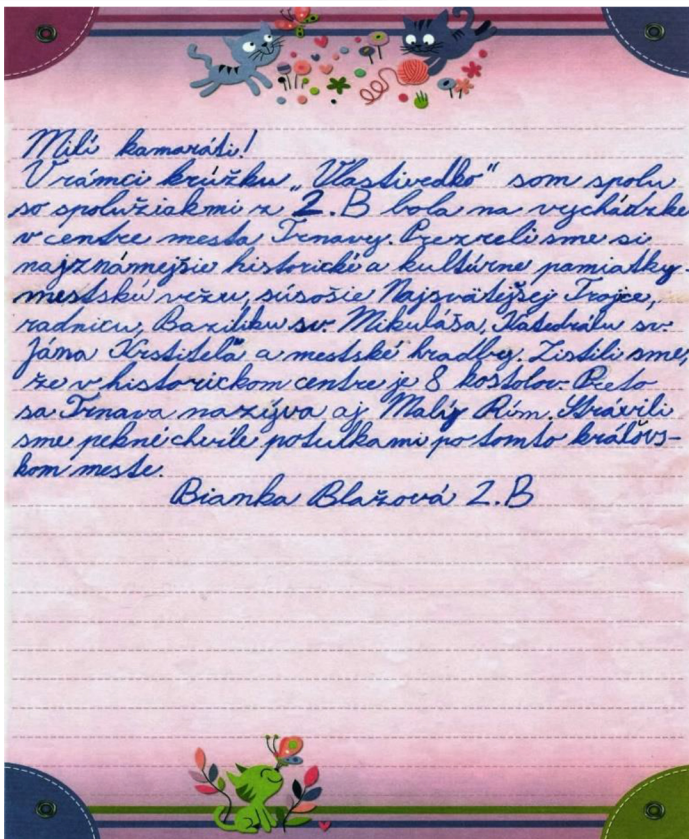 Milí kamaráti!
V rámci krúžku „Vlastivedko" som spolu
so spolužiakmi z 2.B bola na vychádzke
v centre mesta Trnavy. Prezreli sme si
najznámejšie historické a kultúrne pamiatky-
mestskú vežu, súsošie Najsvätejšej Trojice,
radnicu, Baziliku sv. Mikuláša, Katedrálu sv.
Jána Krstiteľa a mestské hradby. Zistili sme,
že v historickom centre je 8 kostolov. Preto
sa Trnava nazýva aj Malý Rím. Strávili
sme pekné chvíle potulkami po tomto kráľovs-
kom meste.
Bianka Blažová 2.B